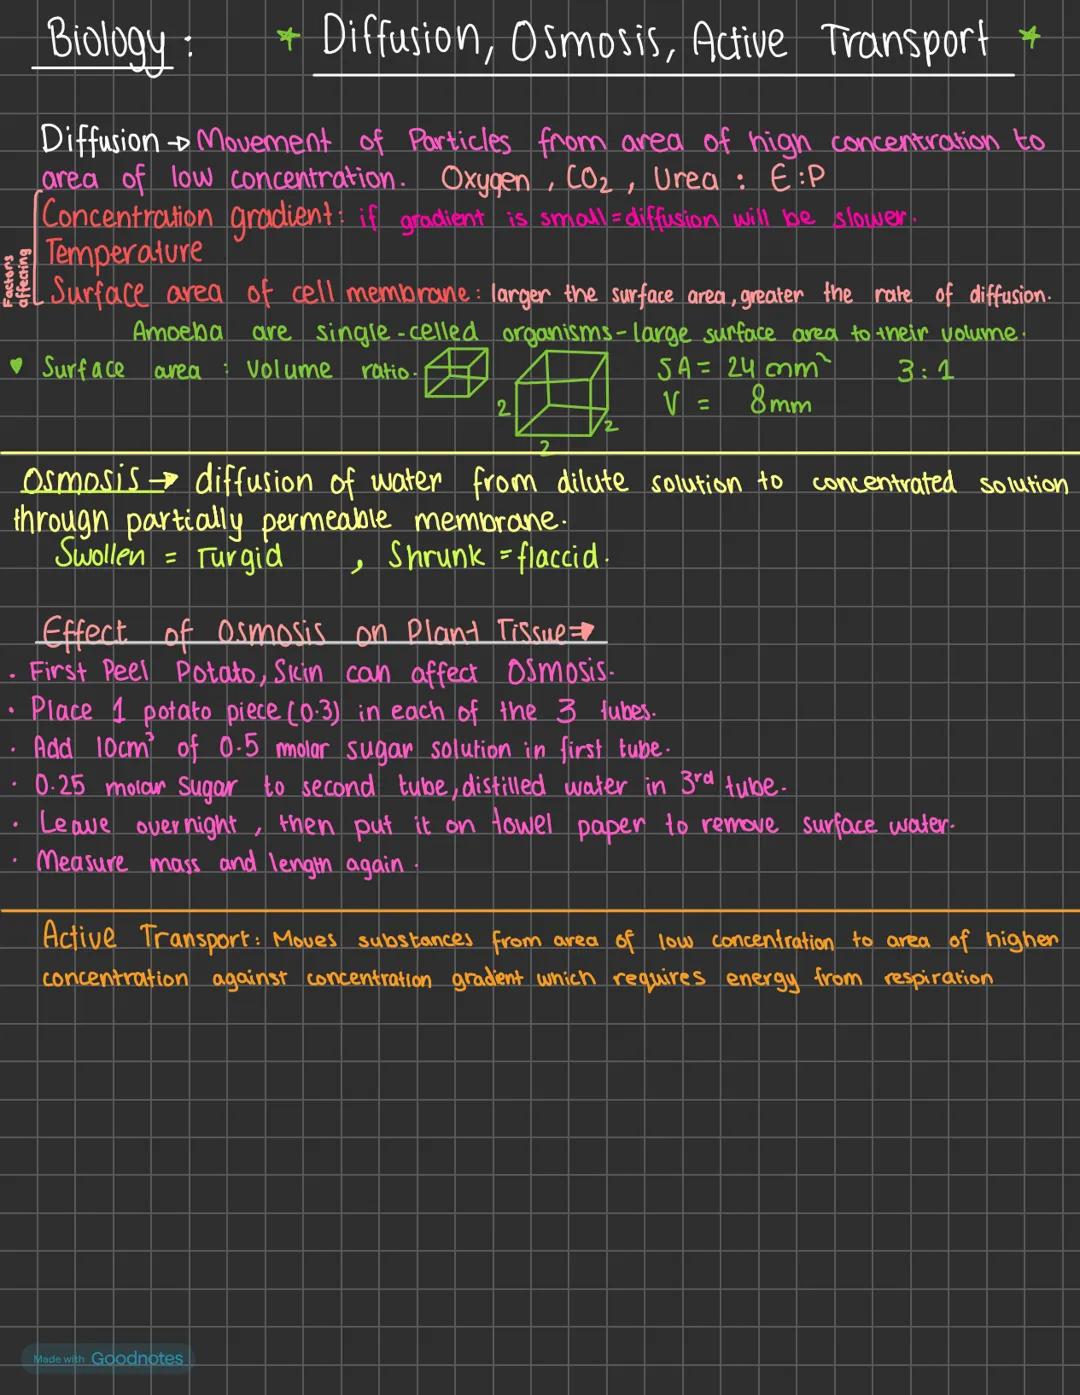 Biology : * Diffusion, Osmosis, Active Transport *
Diffusion → Movement of Particles from area of high concentration to
area of low concentration. Oxygen , CO₂ , Urea : E:P
Factors affecting
Concentration gradient: if gradient is small = diffusion will be slower.
Temperature
Surface area of cell membrane: larger the surface area, greater the rate of diffusion.
Amoeba are single-celled organisms - large surface area to their volume.
♥ Surface area : Volume ratio. SA = 24 mm² 3:1
2 2 V = 8mm
2
Osmosis → diffusion of water from dilute solution to concentrated solution
through partially permeable membrane.
Swollen = Turgid , Shrunk = flaccid.
Effect of Osmosis on Plant Tissue ⇒
· First Peel Potato, Skin can affect Osmosis.
· Place 1 potato piece (0.3) in each of the 3 tubes.
· Add 10cm³ of 0.5 molar sugar solution in first tube.
· 0.25 molar Sugar to second tube, distilled water in 3rd tube.
· Leave overnight , then put it on towel paper to remove surface water.
· Measure mass and length again .
Active Transport: Moves substances from area of low concentration to area of higher
concentration against concentration gradient which requires energy from respiration
Made with Goodnotes